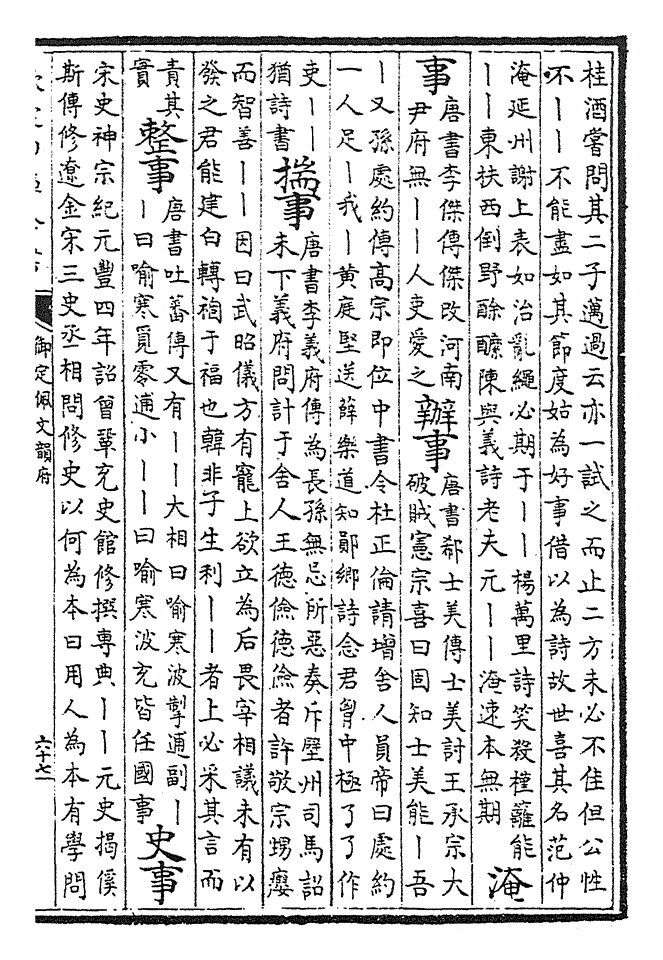 桂酒嘗問其二子邁過云亦一試之而止二方未必不佳但公性
不丨丨不能盡如其節度姑為好事借以為詩故世喜其名范仲
淹延州謝上表如治亂繩必期于丨丨楊萬里詩笑殺樘蘺能
丨丨東扶西倒野酴醿陳與義詩老夫元丨丨淹速本無期
淹
事
唐書李傑傳傑改河南
尹府無丨丨人吏愛之
辦事
唐書郗士美傳士美討王承宗大
破賊憲宗喜曰固知士美能丨吾
丨又孫處約傳高宗即位中書令杜正倫請增舍人員帝曰處約
一人足丨我丨黃庭堅送薛樂道知鄖鄉詩念君胷中極了了作
吏丨丨
猶詩書
揣事
唐書李義府傳為長孫無忌所惡奏斥壁州司馬詔
未下義府問計于舍人王德儉德儉者許敬宗甥癭
而智善丨丨因曰武昭儀方有寵上欲立為后畏宰相議未有以
發之君能建白轉禍于福也韓非子生利丨丨者上必采其言而
責其
實
整事
唐書吐蕃傳又有丨丨大相曰喻寒波掣逋副丨
丨曰喻寒覓零逋小丨丨曰喻寒波充皆任國事
史事
宋史神宗紀元豐四年詔曾鞏充史館修撰專典丨丨元史揭傒
斯傳修遼金宋三史丞相問修史以何為本曰用人為本有學問
御定佩文韻府
六十七